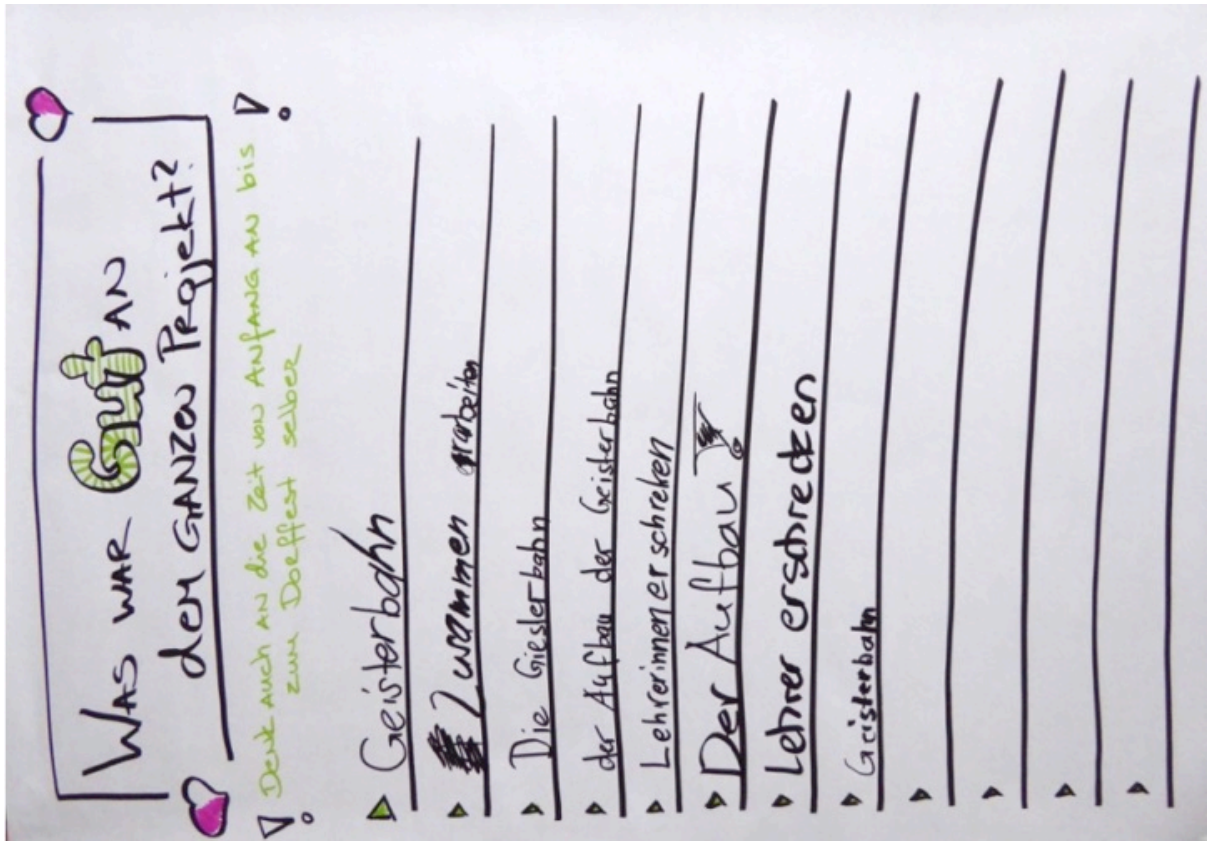 Was war Gut an
dem ganzen Projekt?
! Denk auch an die Zeit von Anfang an bis !
zum Dorffest selber
Geisterbahn
Zusammen arbeiten
Die Gieslerbahn
der Aufbau der Geisterbahn
Lehrerinnen erschreken
Der Aufbau
Lehrer erschrecken
Geisterbahn